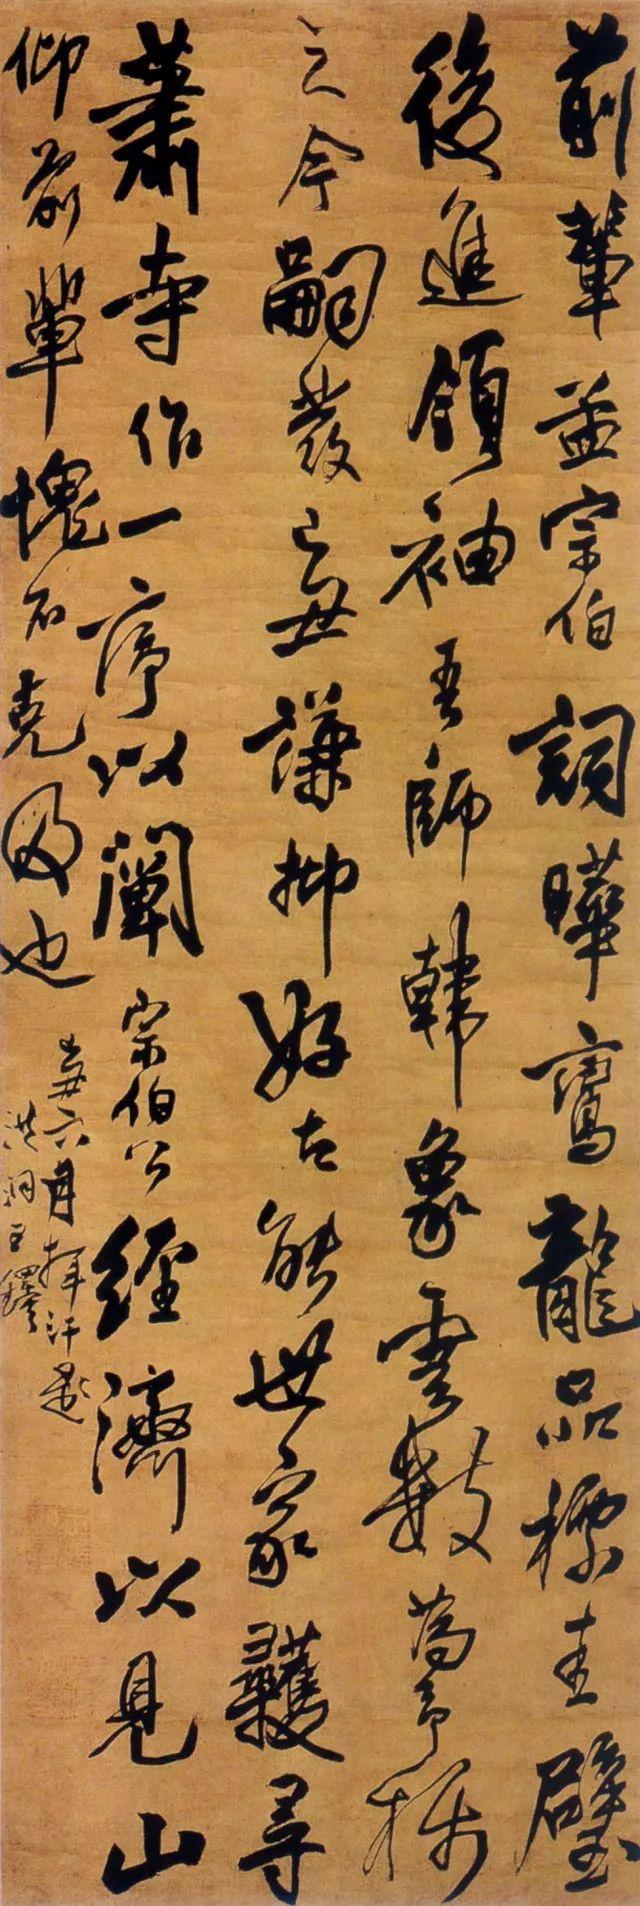 前輩孟宗伯詞曄鸞龍品標圭璧
後進領袖吾師韓象雲數為予稱
之今嗣發己丑謙抑好古能世家
蕭寺作一序以闡宗伯公經濟以見山
仰前輩愧不克及也
丑六月揮汗題
洪洞王鐸